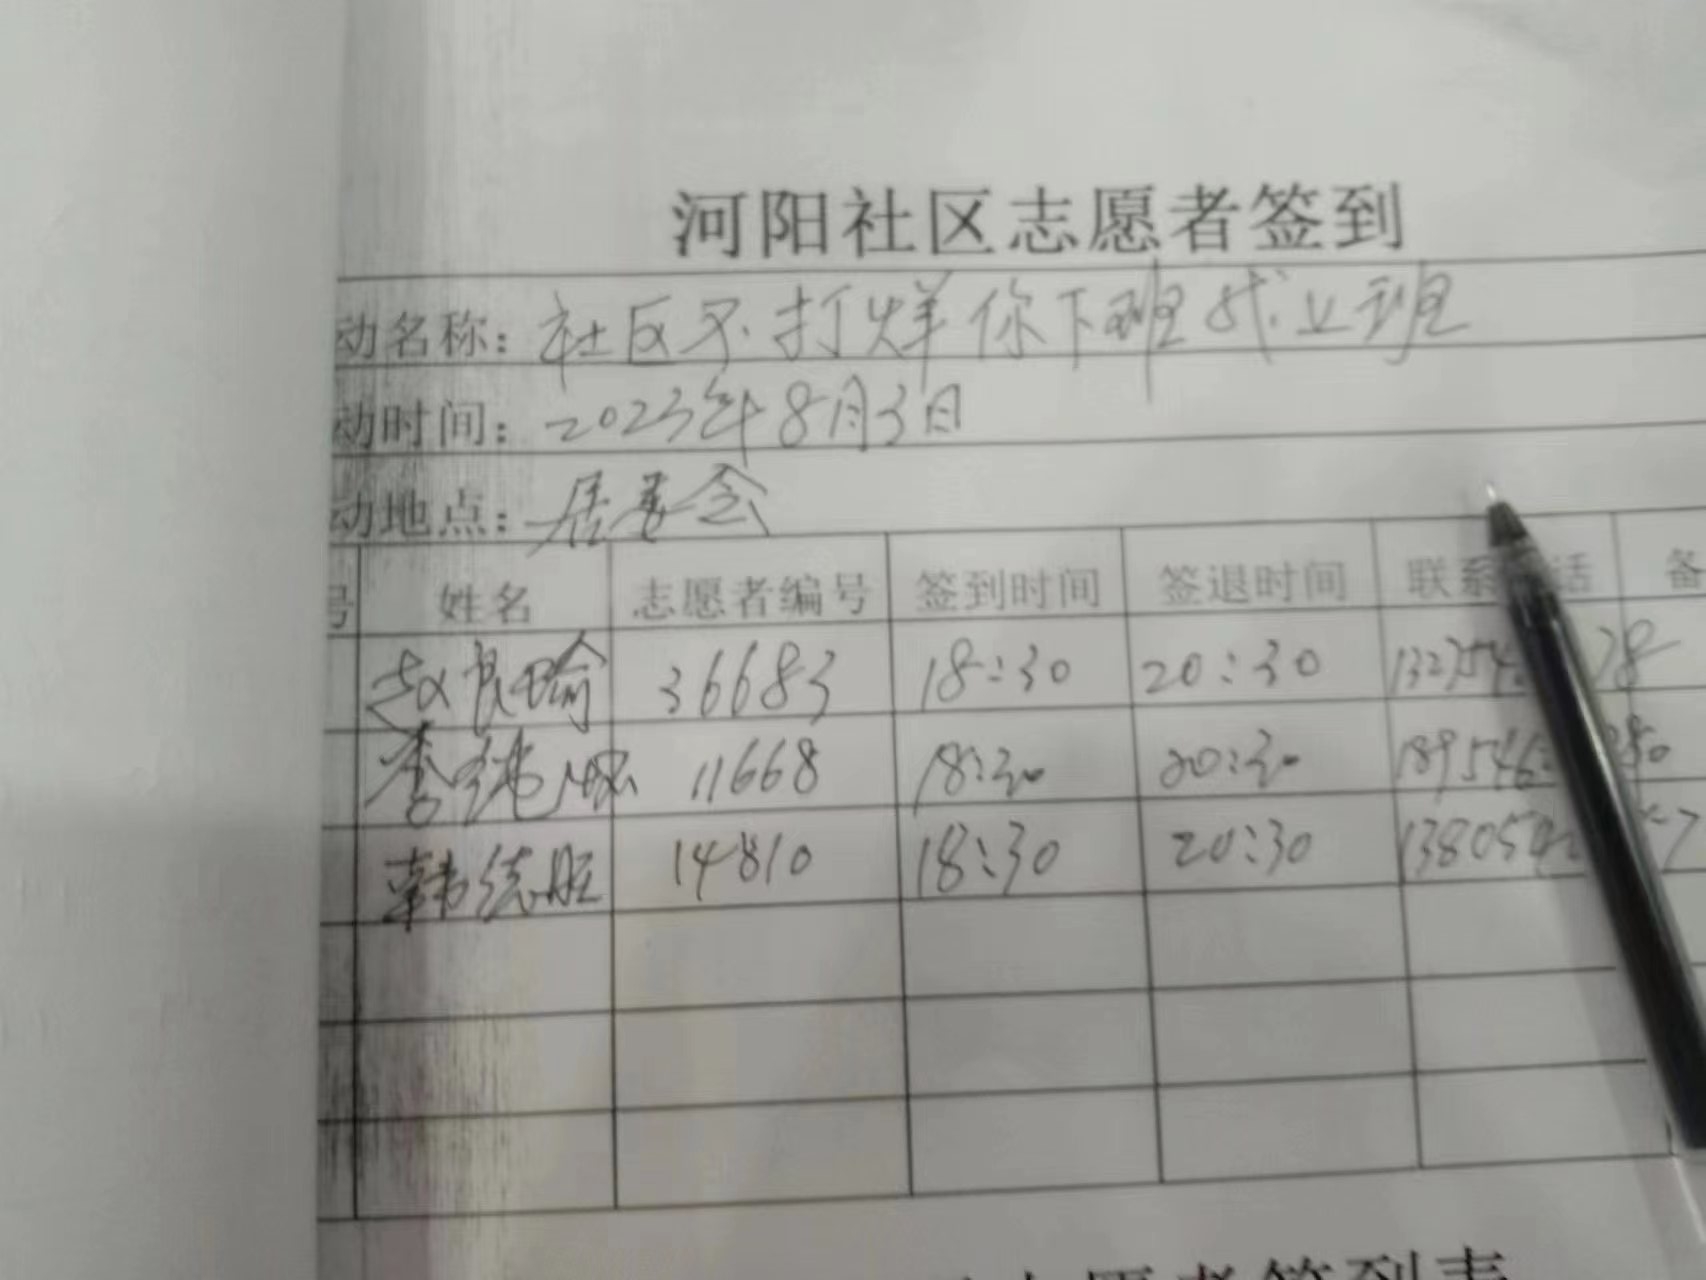 河阳社区志愿者签到
动名称：社区不打烊你下班我上班
动时间：2023年8月3日
动地点：居委会
号 姓名 志愿者编号 签到时间 签退时间 联系 话 备
赵良瑜 36683 18:30 20:30 78
李 11668 18:30 20:30
韩德旺 14810 18:30 20:30 1380540
志愿者签到表